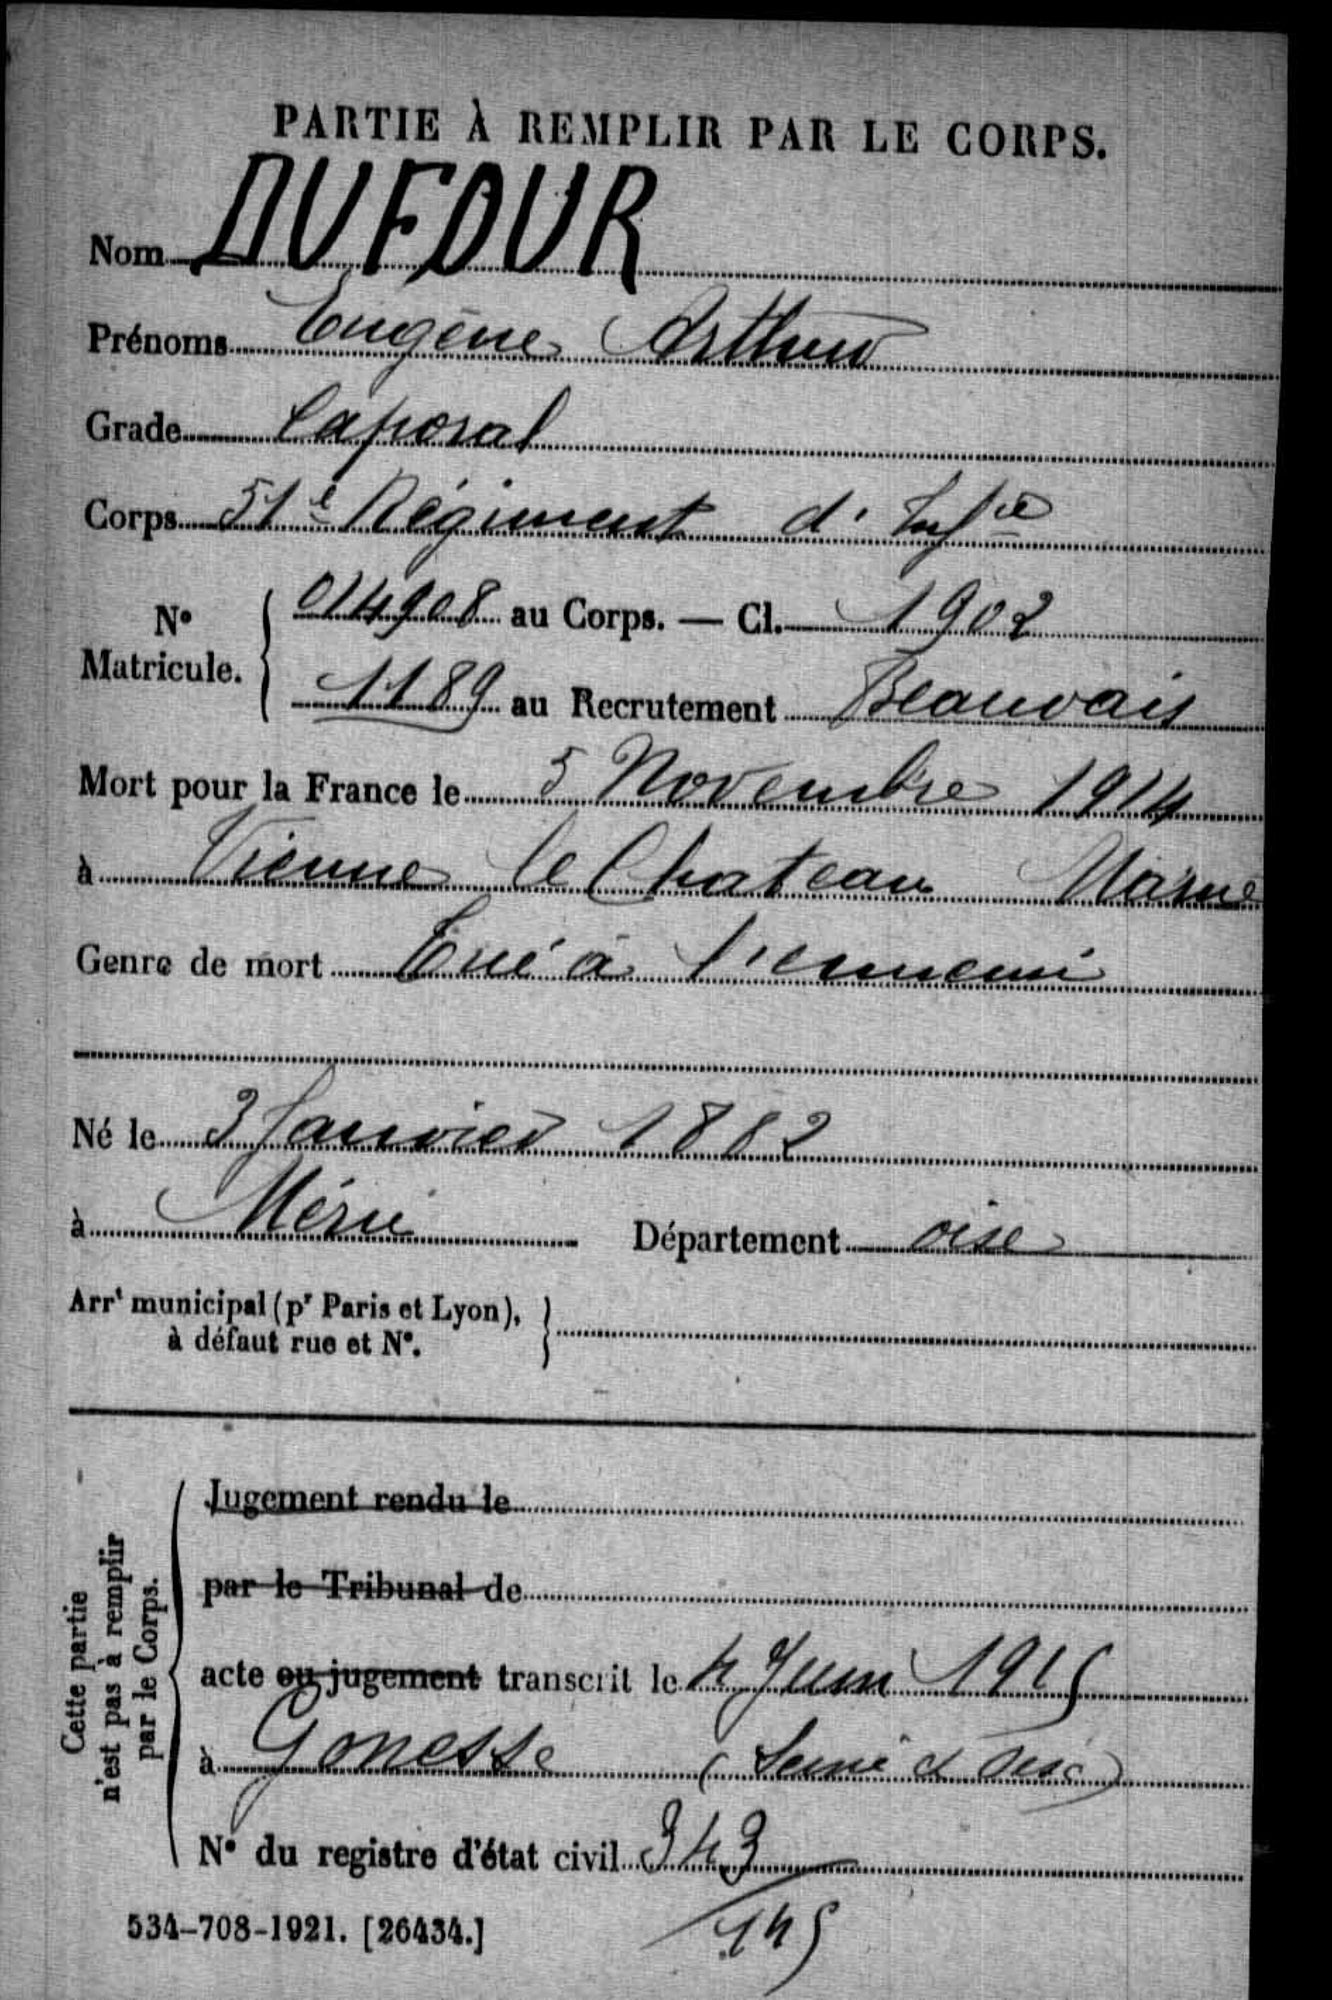 PARTIE À REMPLIR PAR LE CORPS.
Nom DUFOUR
Prénoms Eugène Arthur
Grade Caporal
Corps 51e Régiment d'Infie
No Matricule. 014908 au Corps. — Cl. 1902
1189 au Recrutement Beauvais
Mort pour la France le 5 Novembre 1914
à Vienne le Chateau Marne
Genre de mort Tué à l'ennemi
Né le 3 Janvier 1882
à Méru Département oise
Arrt municipal (pr Paris et Lyon),
à défaut rue et No.
Cette partie
n'est pas à remplir
par le Corps.
Jugement rendu le
par le Tribunal de
acte ou jugement transcrit le 4 Juin 1915
à Gonesse (Seine et Oise)
No du registre d'état civil 343
534-708-1921. [26434.]
145